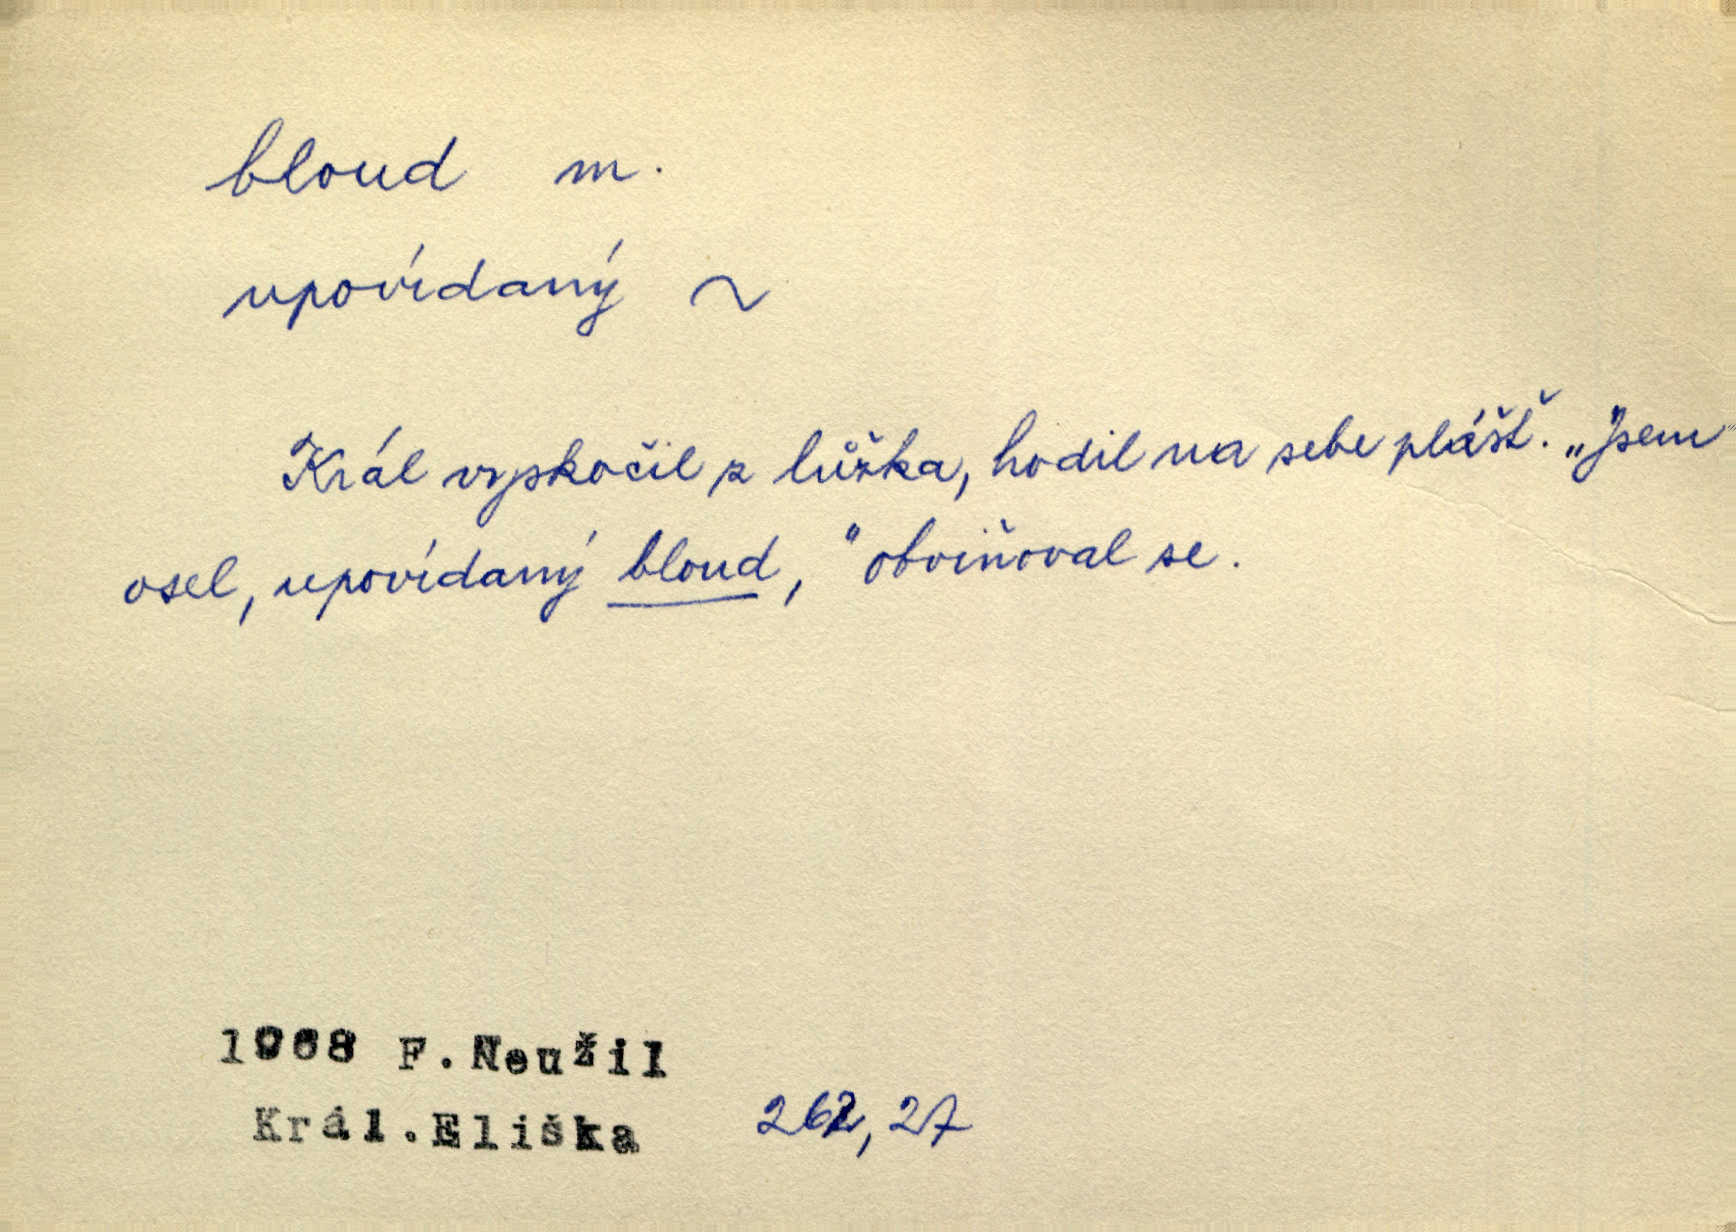 bloud m.
upovídaný ~
Král vyskočil z lůžka, hodil na sebe plášť. „Jsem
osel, upovídaný bloud,“ obviňoval se.
1968 F.Neužil
Král.Eliška 262, 27